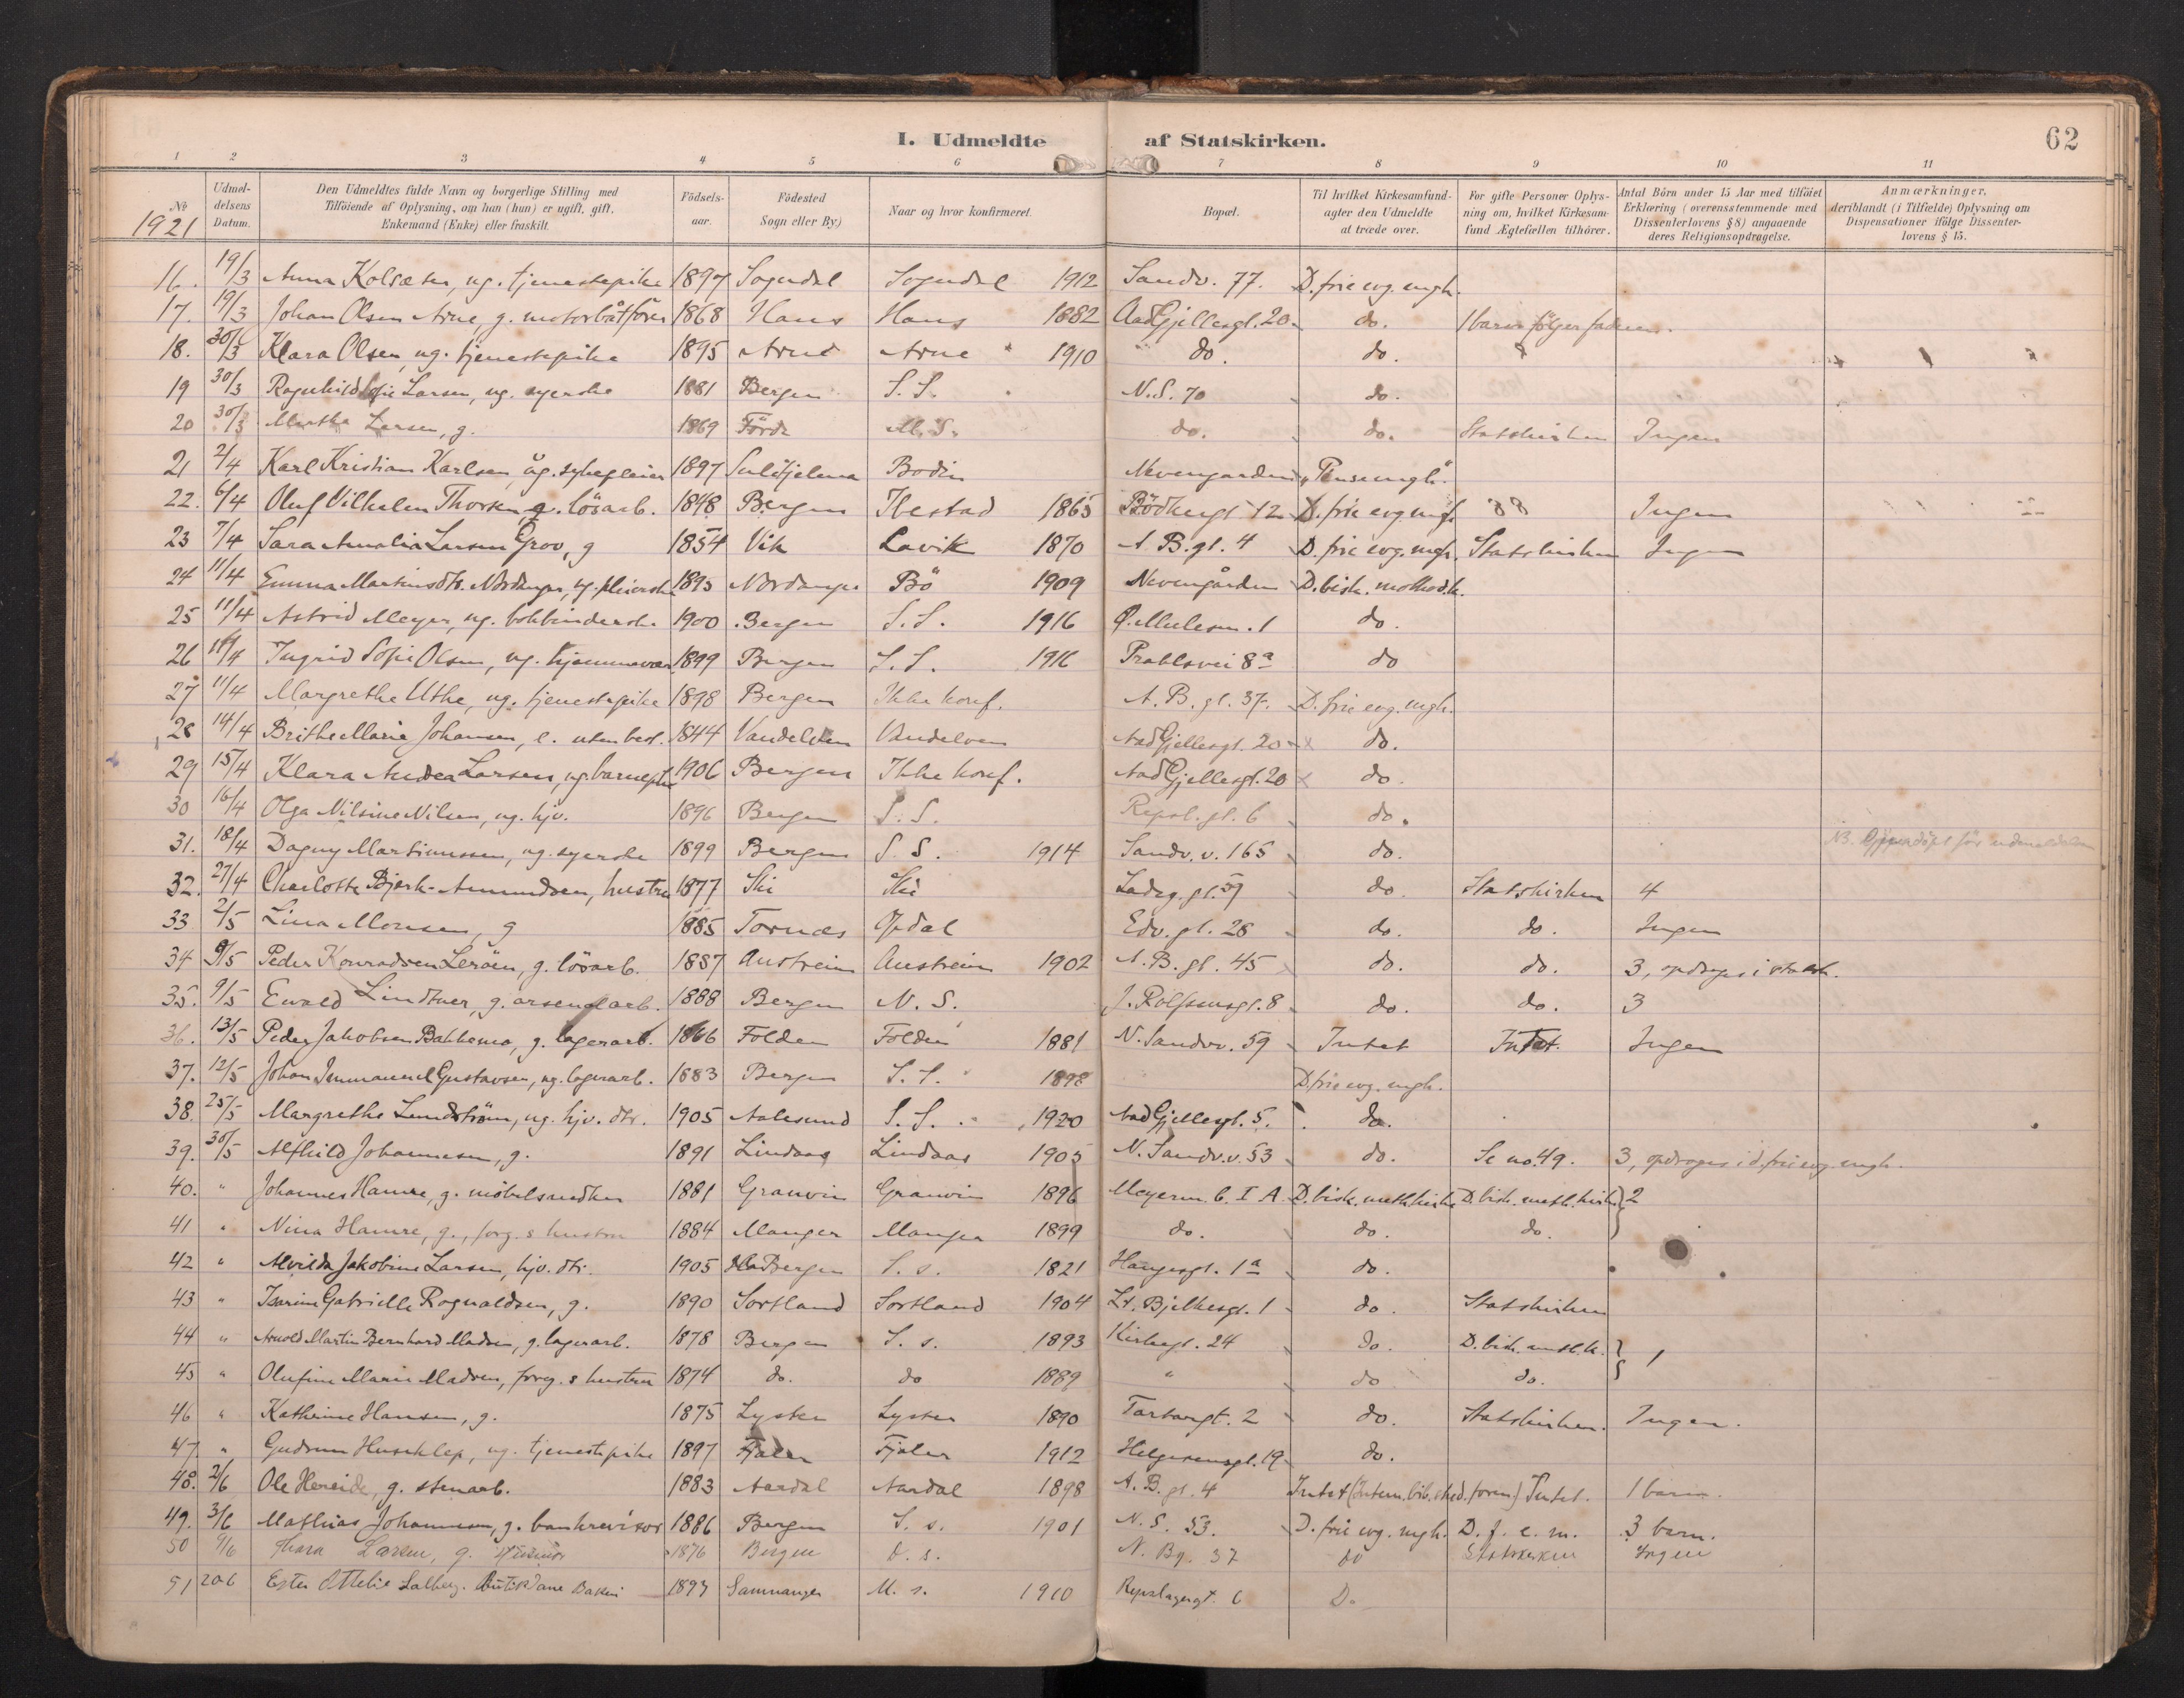 I. Udmeldte af Statskirken. 62
1 2 3 4 5 6 7 8 9 10 11
No 1921
Udmeldelsens Datum.
Den Udmeldtes fulde Navn og borgerlige Stilling med Tilföiende af Oplysning, om han (hun) er ugift, gift, Enkemand (Enke) eller fraskilt.
Födselsaar.
Födested Sogn eller By)
Naar og hvor konfirmeret.
Bopæl.
Til hvilket Kirkesamfund agter den Udmeldte at træde over.
For gifte Personer Oplysning om, hvilket Kirkesamfund Ægtefællen tilhörer.
Antal Börn under 15 Aar med tilföiet Erklæring (overensstemmende med Dissenterlovens § 8) angaaende deres Religionsopdragelse.
Anmærkninger, deriblandt (i Tilfælde) Oplysning om Dispensationer ifölge Dissenterlovens § 15.
16. 19/3 Anna Kolsæter, ug. tjenestepike 1897 Sogndal Sogndal 1912 Sandv. 77. D. frie evg. mgh.
17. 19/3 Johan Olsen Arne, g. motorbåtförer 1868 Haus Haus 1882 Aad Gjellesgt. 20 do. 1 barn fölger faderen.
18. 30/3 Klara Olsen, ug. tjenestepike 1895 Arne Arne 1910 do. do.
19 30/3 Ragnhild Sofie Larsen, ug. syerske 1881 Bergen S. S. N. S. 70 do.
20 30/3 Marthe Larsen, g. 1869 Förde M. S. do. do. Statskirken Ingen
21 2/4 Karl Kristian Karlsen, ug. sykepleier 1897 Sulitjelma Bodin Nevengarden "Pinsemgh."
22. 6/4 Oluf Vilhelm Thorsen, g. lösarb. 1848 Bergen Ibestad 1865 Bödkergt 12 D. frie evg. mgh. do Ingen
23 7/4 Sara Amalia Larsen Grov, g 1854 Vik Lavik 1870 A. B. gt. 4 D. frie evg. mgh. Statskirken Ingen
24 11/4 Emma Martinsdtr. Nordanger, ug. pleierske 1895 Nordanger Bö 1909 Nevengården D. bisk. methodk.
25 11/4 Astrid Meyer, ug. bokbinderske 1900 Bergen S. S. 1916 Ø. Mulesm. 1 do.
26 11/4 Ingrid Sofie Olsen, ug. hjemmevær. 1899 Bergen S. S. 1916 Prahlsvei 8a do
27 11/4 Margrethe Uthe, ug. tjenestepike 1898 Bergen Ikke konf. A. B. gt. 37. D. frie evg. mgh.
28 14/4 Brithe Marie Johansen, e. uten besk. 1844 Vandelven Vandelven Aad Gjellesgt. 20 do.
29 15/4 Klara Andea Larsen, ug. barnepike 1906 Bergen Ikke konf. Aad Gjellesgt. 20 do.
30 16/4 Olga Nilsine Nilsen, ug. hjv. 1896 Bergen S. S. Repsl. gt. 6 do.
31. 18/4 Dagny Martinussen, ug. syerske 1899 Bergen S. S. 1914 Sandv. v. 165 do. NB. Gjendöpt för udmeldelsen
32. 27/4 Charlotte Bjerk-Amundsen, hustru 1877 Ski Ski Ladeg. gt. 59 do Statskirken 4
33 2/5 Lina Monsen, g 1885 Tornæs Opdal Edv. gt. 28 do. do. Ingen
34 9/5 Peder Konradsen Leröen, g. lösarb. 1887 Austrein Austrein 1902 A. B. gt. 45 do. do. 3, opdrages i statsk.
35. 9/5 Ewald Lindtner, g. arsenalarb. 1888 Bergen N. S. J. Rolfsensgt. 8 do. do. 3
36. 13/5 Peder Jakobsen Bakkemo, g. lagerarb. 1866 Folden Folden 1881 N. Sandv. 59 Intet Intet. Ingen
37. 12/5 Johan Immanuel Gustavsen, ug. lagerarb. 1883 Bergen S. S. 1898 D. frie evg. mgh.
38. 25/5 Margrethe Lundström, ug. hjv. dtr. 1905 Aalesund S. S. 1920 Aad Gjellesgt. 5. do.
39. 30/5 Alfhild Johannesen, g. 1891 Lindaas Lindaas 1905 N. Sandv. v. 53 do. Se no. 49. 3, opdrages i d. frie evg. mgh.
40. " Johannes Hamre, g. möbelsnedker 1881 Granvin Granvin 1896 Meyerm. b. I A D. bisk. meth. kirke D. bisk. meth. kirke } 2
41 " Nina Hamre, g., forg. s hustru 1884 Manger Manger 1899 do. do. do.
42 " Alvilda Jakobine Larsen, hjv. dtr. 1905 Bergen S. s. 1821 Haugesgt. 1a do.
43 " Isarine Gabrielle Rognaldsen, g. 1890 Sortland Sortland 1904 Lt. Bjelkesgt. 1 do. Statskirken
44 " Arnold Martin Bernhard Madsen, g. lagerarb. 1878 Bergen S. s. 1893 Kirkegt. 24 do. D. bisk. meth. k. } 1
45 " Olufine Marie Madsen, forg. s hustru 1874 do. do 1889 " do do.
46 " Kathrine Hansen, g. 1875 Lyster Lyster 1890 Tartargt. 2 do. Statskirken. Ingen.
47. " Gudrun Huseklep, ug. tjenestepike 1897 Fjaler Fjaler 1912 Helgesensgt. 19 do.
48. 2/6 Ole Hereide, g. stenarb. 1883 Aardal Aardal 1898 A. B. gt. 4 Intet (Intern. bib. stud. foren.) Intet. 1 barn.
49. 3/6 Mathias Johannesen, g. bankrevisor 1886 Bergen S. s. 1901 N. S. 53. D. frie evg. mgh. D. f. e. m. 3 barn.
50 9/6 Thora Larsen, g. 1876 Bergen D. s. N. Bg. 37 do Statskirken Ingen
51 20 6 Ester Ottelie Salberg. Butikdame 1897 Samnanger M. s. 1910 Repslagergt. 6 D.